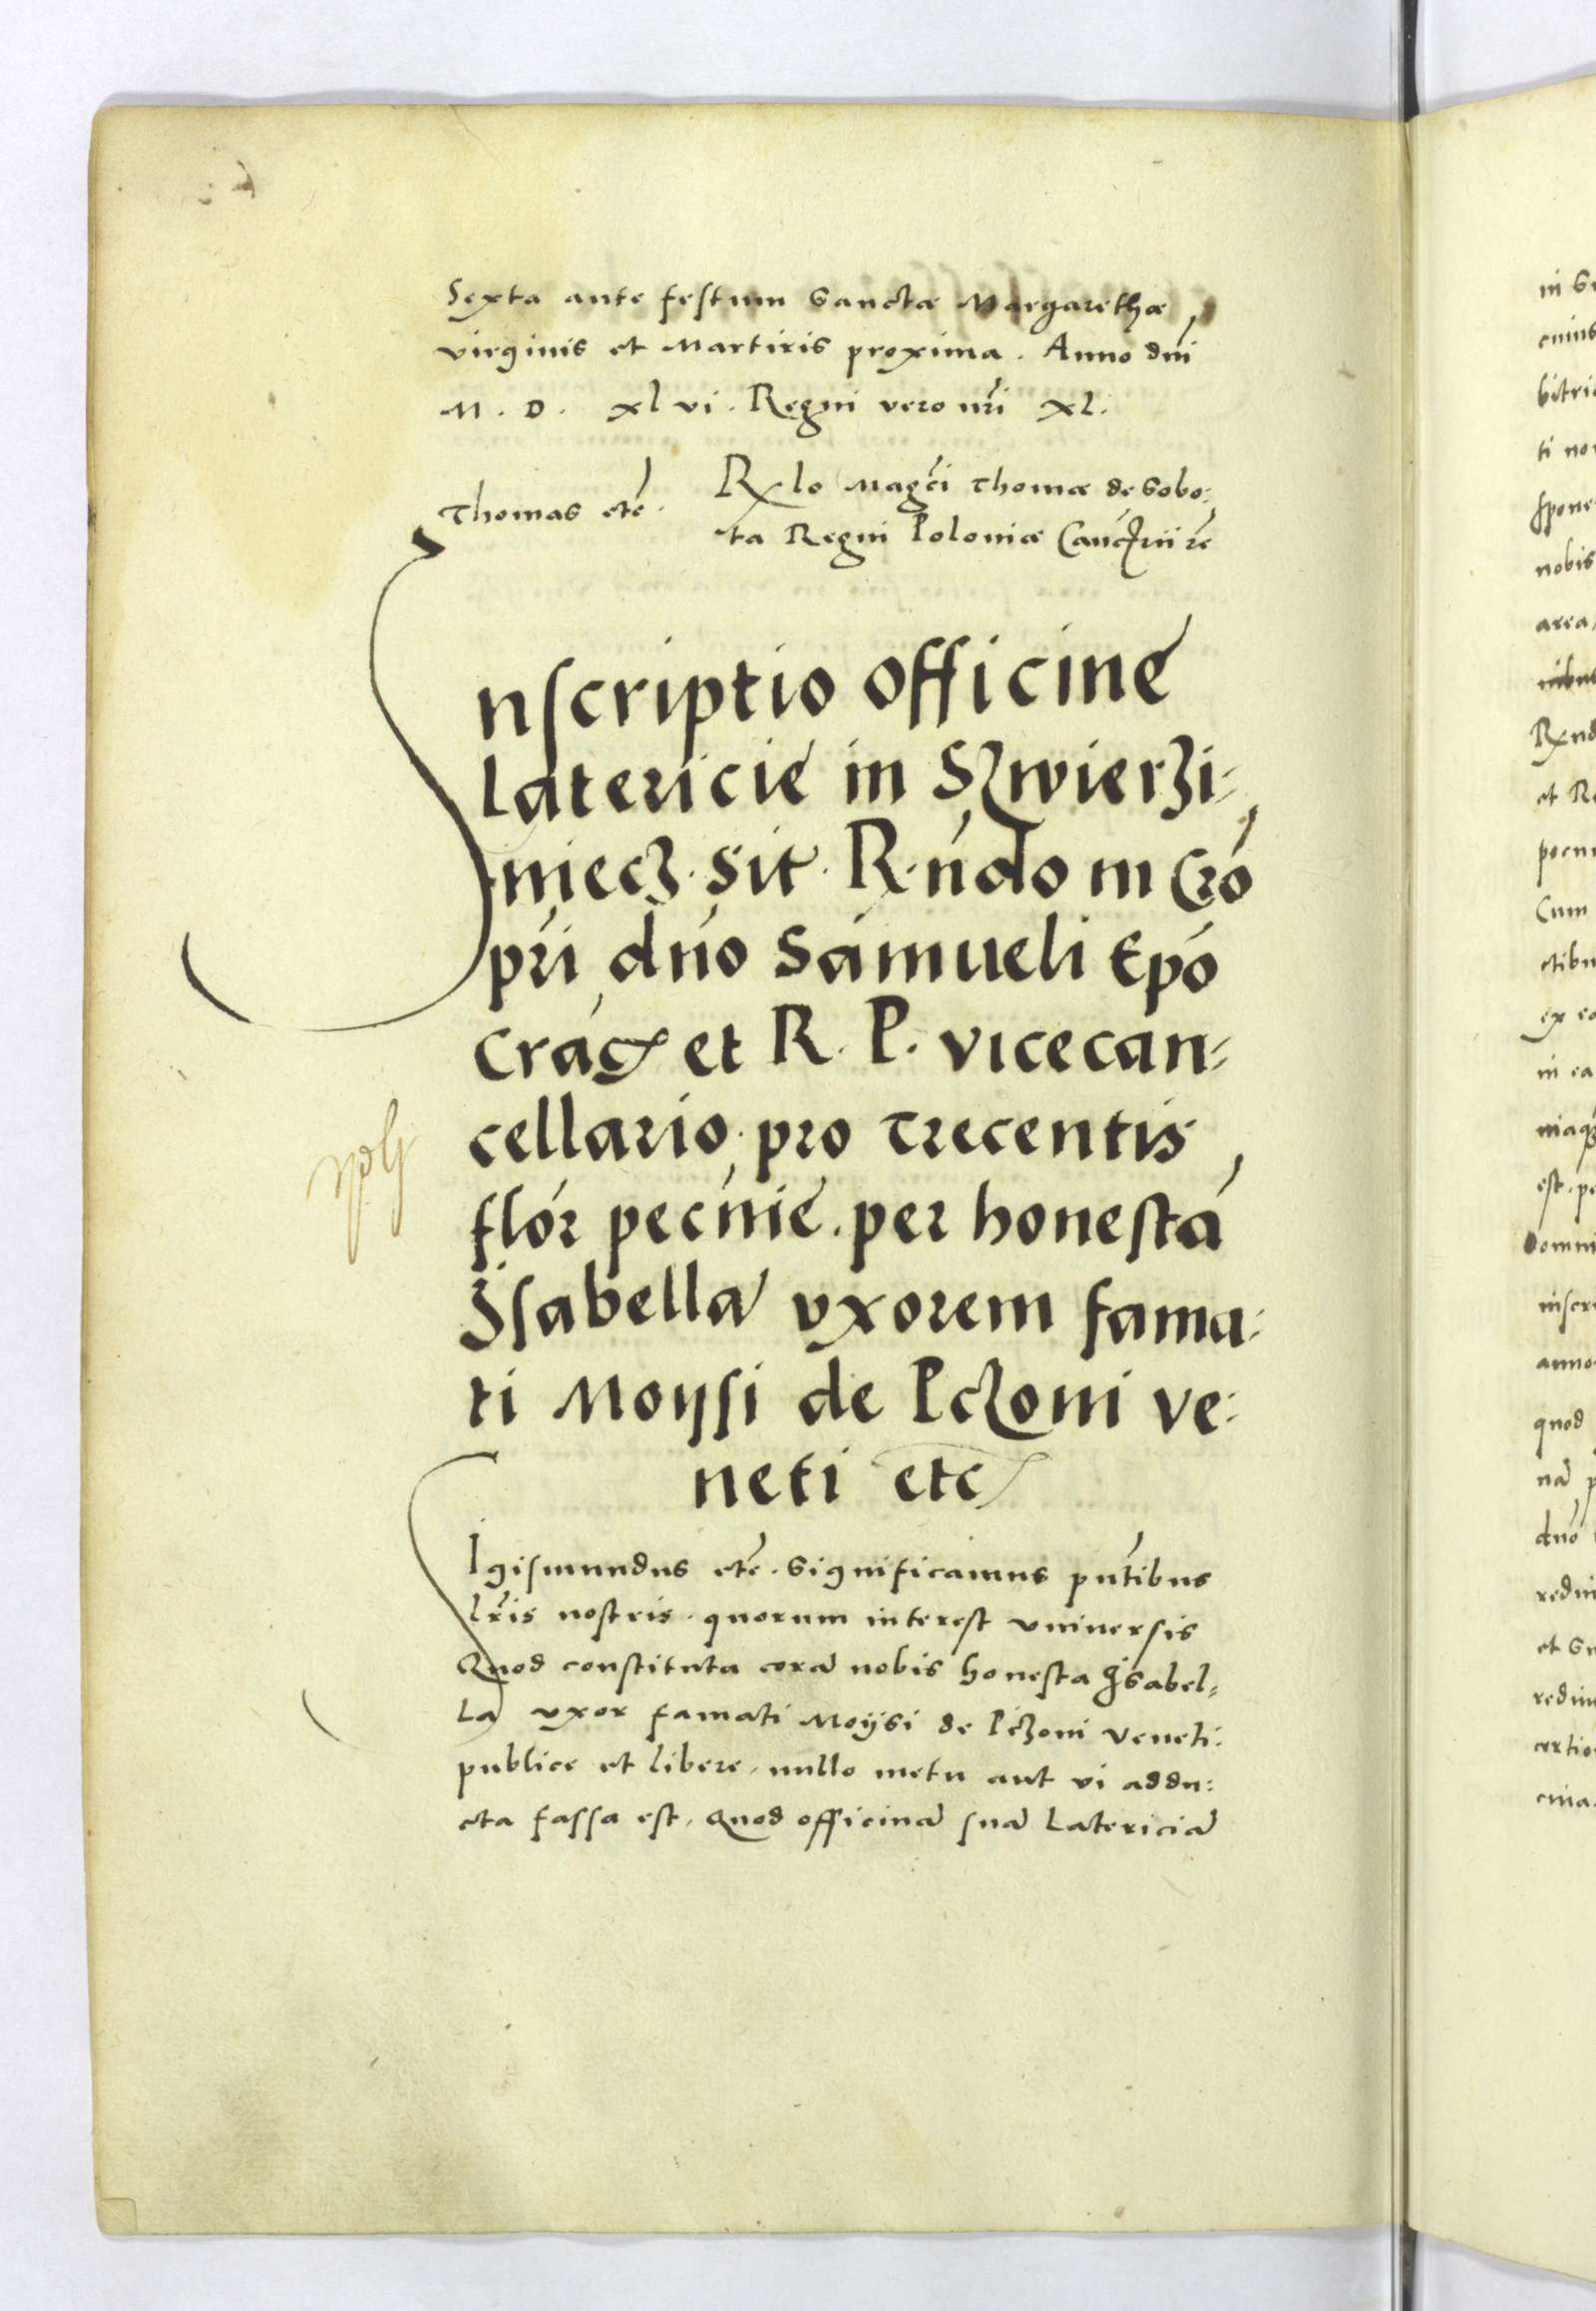 Sexta ante festum Sanctæ Margarethæ
virginis et Martiris proxima. Anno dni
M. D. xl vi. Regni vero nri XL.
Thomas etc. Rlo Magci Thomæ de Sobo:
ta Regni Poloniæ Canc rii re
Inscriptio officine
latericie in Szwierzi-
niecz. sit. R. ndo in Cro
pri dno Samueli Epo
Crac et R. P. vicecan-
cellario. pro trecentis
flor pecunie. per honestā
Isabellā uxorem fama:
ti Moysi de Pczoni ve:
neti etc
SIgismundus etc. Significamus pntibus
lris nostris. quorum interest universis
Quod constituta corā nobis honesta Isabel-
la uxor famati Moysi de Piczoni Veneti.
publice et libere, nullo metu aut vi addu:
cta fassa est, Quod officinā suā Latericiā
in
cuius
bitri
ti
spone
nobis
area
et
pecu
Cum
ctibu
in ea
est.
Domni
inscr
anno
quod
nā
dno
redim
et
redim
certio